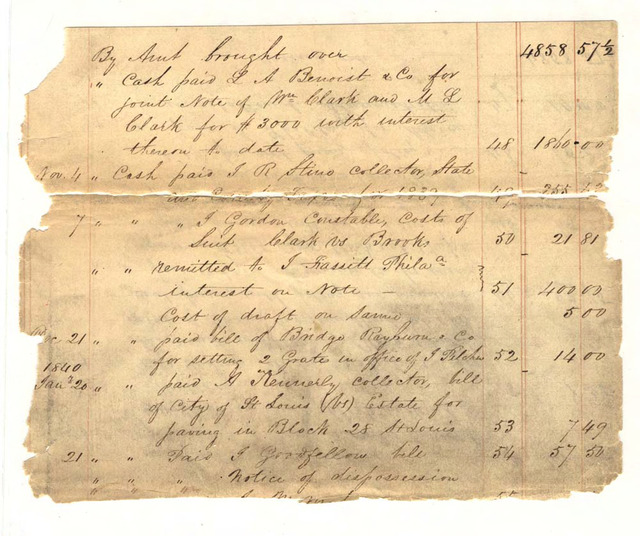 By Amt brought over 4858 57½
" Cash paid L A Benoist & Co for
joint Note of Wm Clark and M L
Clark for $3000 with interest
thereon to date 48 1860.00
Nov. 4 " Cash paid J R Stino collector, State
and County Taxes for 1839 49 755
7 " " " J Gordon Constable, Costs of
Suit Clark vs Brooks 50 21 81
" " remitted to J Fassitt Phila
interest on Note – 51 400 00
Cost of draft on same 5 00
21 " " paid bill of Bridge Rayburn & Co
for setting 2 Grate in office of J 52 14 00
1840
Jany 20 " " paid A Kennerly collector, bill
of City of St Louis (vs) Estate for
paving in Block 28 St Louis 53 7 49
21 " " Paid J Goodfellow bill 54 57 50
" " " Notice of dispossession